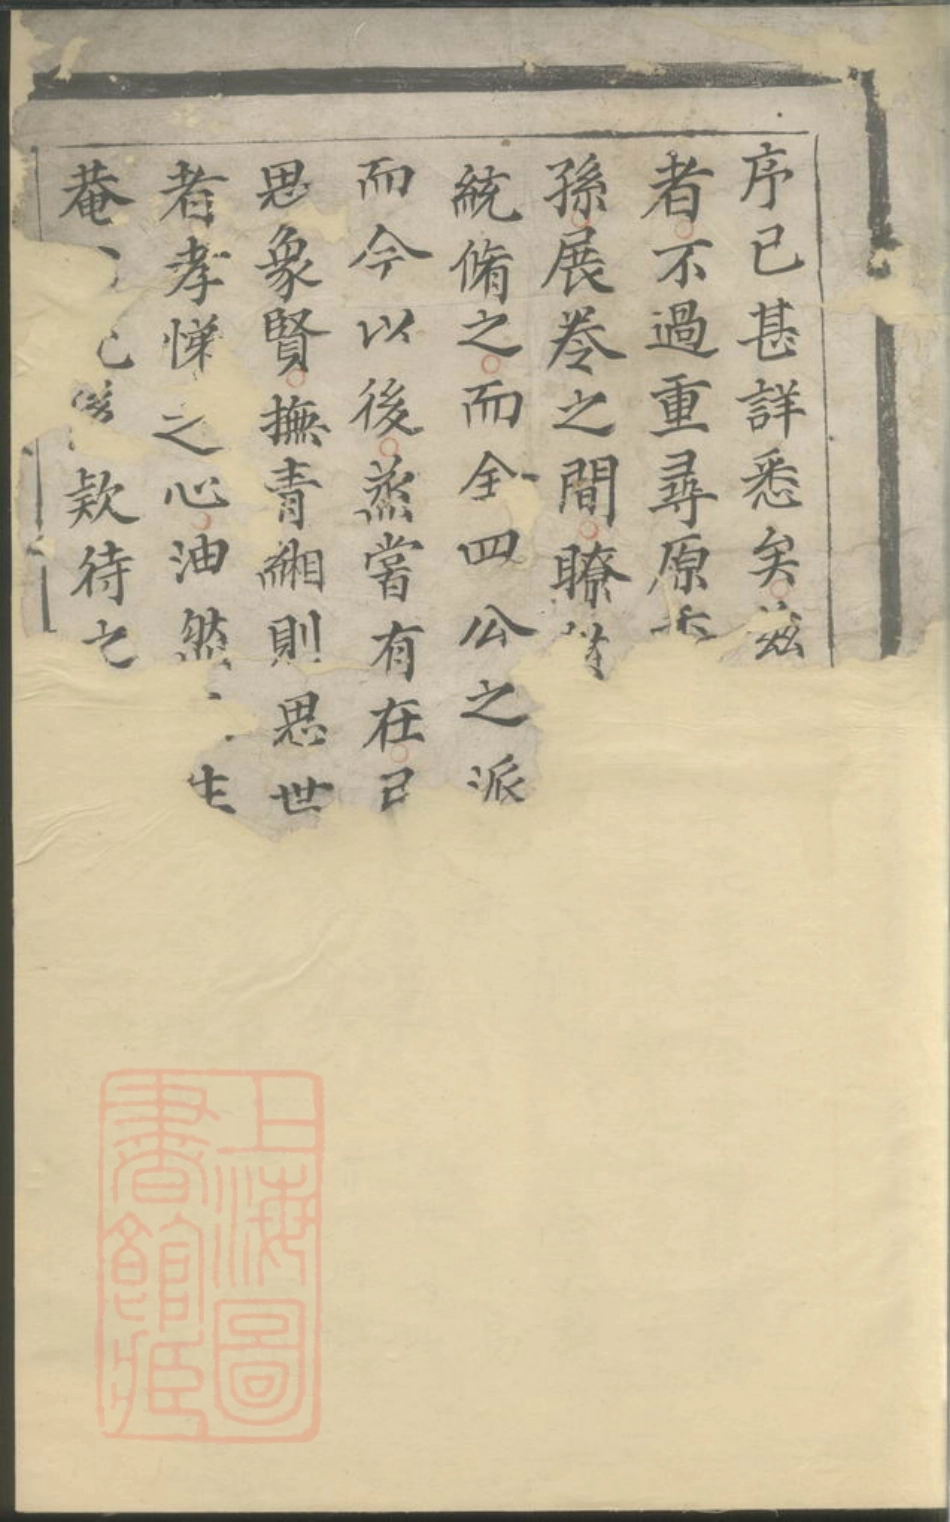 序已甚詳悉矣茲
者不過重尋原
孫展卷之間瞭
統脩之而全四公之派
而今以後蒸嘗有在已
思象賢撫青緗則思世
者孝悌之心油然生
菴欵待之
上海圖
書館藏